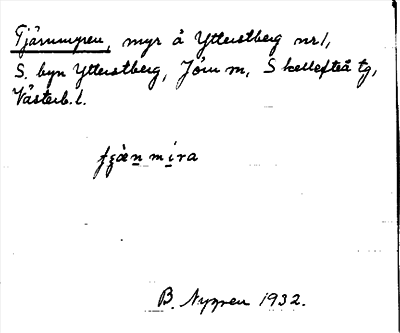 Tjärnmyren, myr å Ytterstberg nr 1,
S. byn Ytterstberg, Jörn m, Skellefteå tg,
Västerb. l.
B. Nygren 1932.